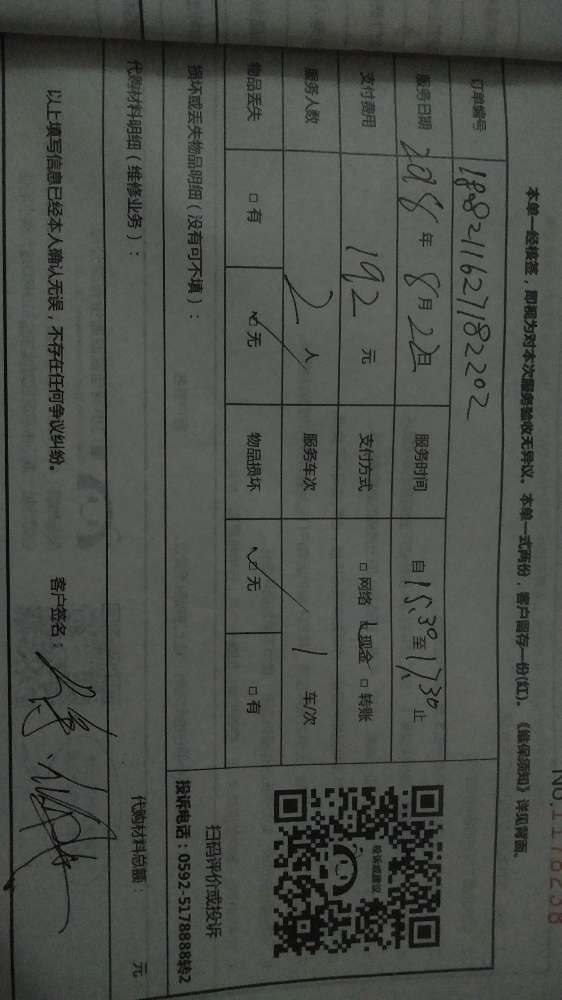 NO.1178238
本单一经核签，即视为对本次服务验收无异议。本单一式两份，客户留存一份(红)。《维保须知》详见背面。
订单编号 18821162718 2202
服务日期 2018年8月22日 服务时间 自15:30至17:30止
支付费用 192元 支付方式 □网络 ☑现金 □转账
服务人数 2人 服务车次 1车/次
物品丢失 □有 ☑无 物品损坏 ☑无 □有
损坏或丢失物品明细（没有可不填）：
代购材料明细（维修业务）： 代购材料总额： 元
以上填写信息已经本人确认无误，不存在任何争议纠纷。 客户签名：
投诉或建议
扫码评价或投诉
投诉电话：0592-5178888转2